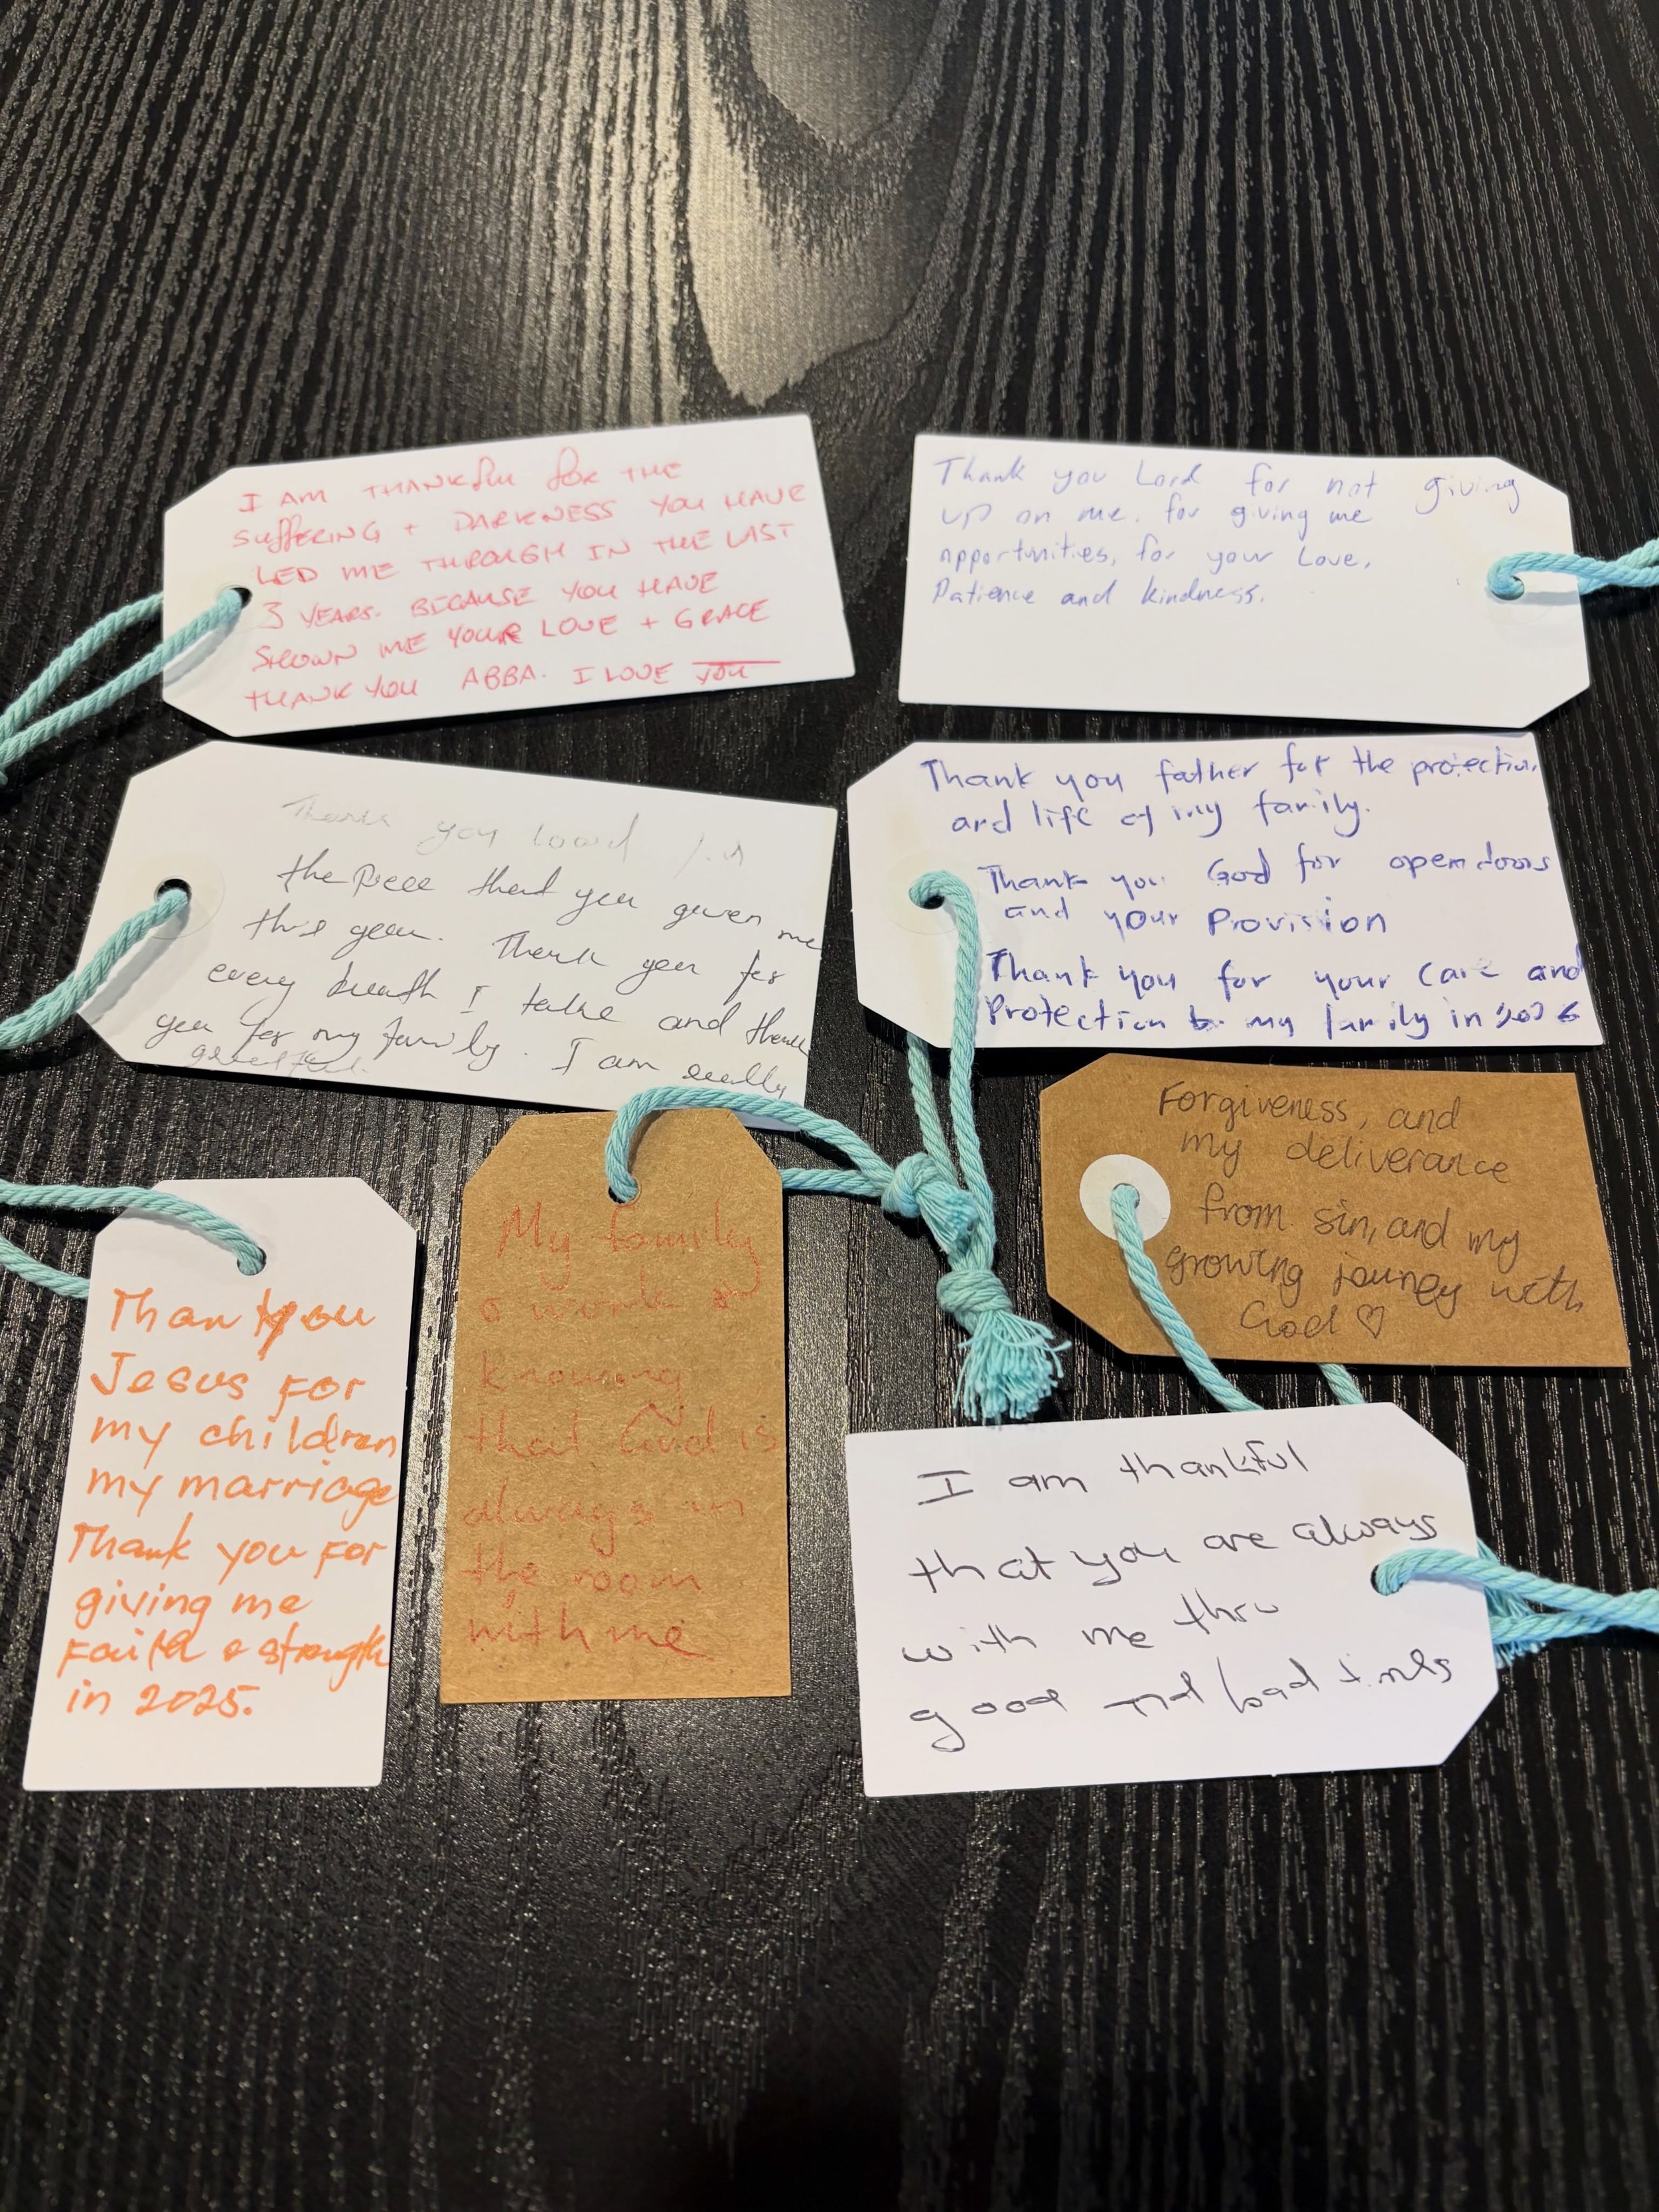 I AM THANKful for THE
SUffERING + DARKNESS YOU HAVE
LED ME THROUGH IN THE LAST
3 YEARS. BECAUSE YOU HAVE
SHOWN ME YOUR LOVE + GRACE
THANK YOU ABBA. I LOVE YOU
Thank you Lord for not giving
up on me. for giving me
opportunities, for your Love,
Patience and kindness.
Thank you
the that you given me
this year. Thank you for
every breath I take and thank
you for my family. I am really
grateful.
Thank you father for the protection
and life of my family.
Thank you God for open doors
and your Provision
Thank you for your care and
Protection my family in
Forgiveness, and
my deliverance
from sin, and my
growing jouney with
God ♡
Thank you
Jesus For
my children
my marriage
Thank you For
giving me
Faith & strength
in 2025.
My family
work &
knowing
that God is
always in
the room
with me
I am thankful
that you are always
with me thru
good and bad times